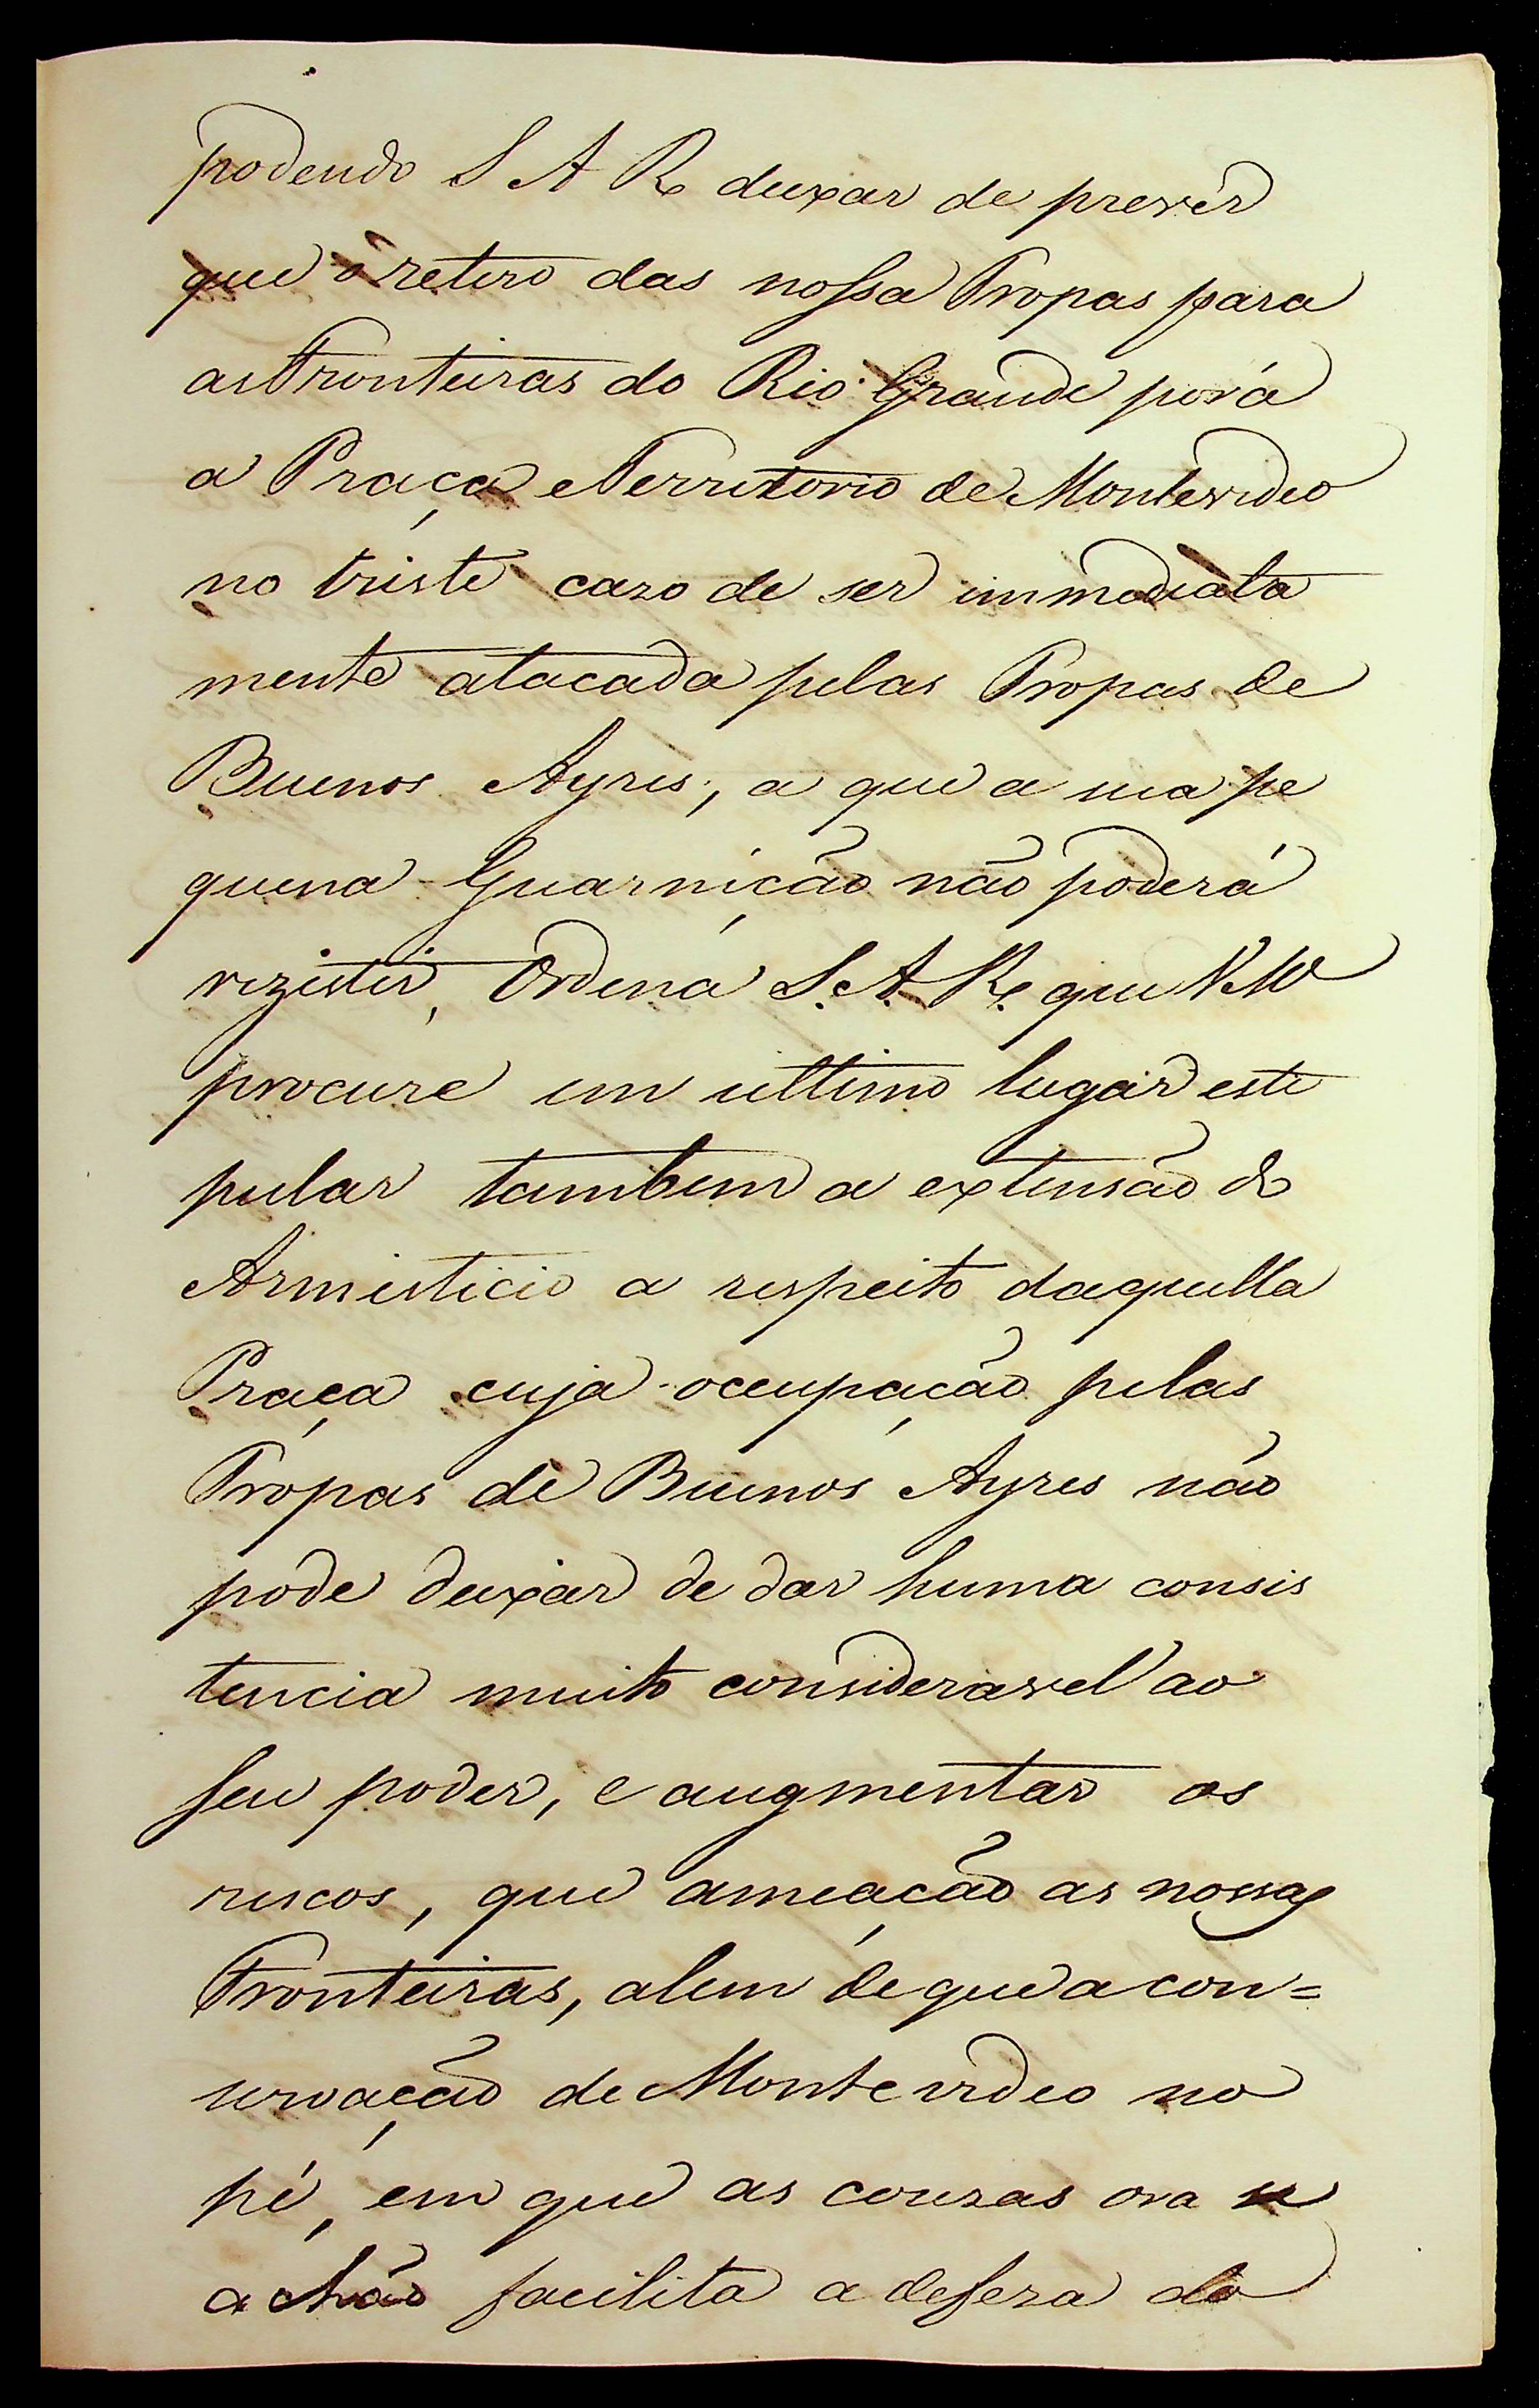 podendo S A R deixar de prevêr
que o retiro das nossa Tropas para
as Fronteiras do Rio Grande porá
a Praça e Territorio de Montevideo
no triste cazo de ser immediata
mente atacada pelas Tropas de
Buenos Ayres, a que a sua pe
quena Guarnição não poderá
rezistir, Ordena S. A. R. que V. M
procure em ultimo lugar esti
pular tambem a extensão do
Armisticio a respeito daquella
Praça cuja occupação pelas
Tropas de Buenos Ayres não
pode deixar de dar huma consis
tencia muito consideravel ao
seu poder, e augmentar os
riscos, que ameação as nossas
Fronteiras, alem de que a con=
servação de Montevideo no
pé, em que as couzas ora se
achão facilita a defeza do